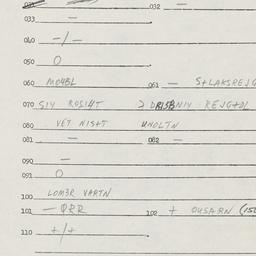 032 —
033 —
040 —/—
050 O
060 MOHBL 061 — S+LAKSREJG
070 SIY ROSIHT
080 VET NIS+T UHOLTN
081 — 082 —
090 —
091 O
100 LOM3R VARTN
101 — ØRR 102 + OUSARN (150
110 +/+